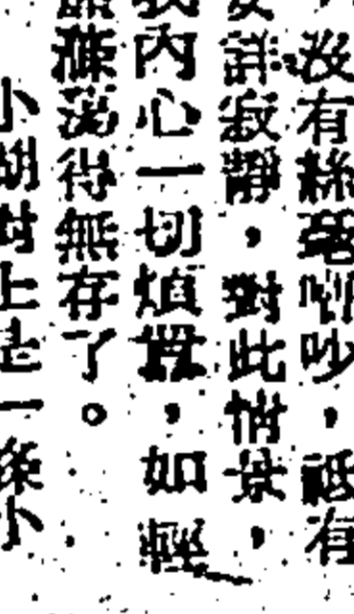 沒有絲毫嘈吵，祗有
詳寂靜，對此情景，
我內心一切煩囂，如輕
滌蕩得無存了。
小胡對上是一條小